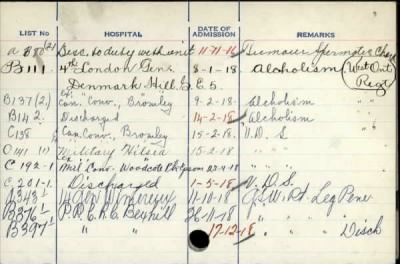 LIST No HOSPITAL DATE OF ADMISSION REMARKS
a 880(2) Disc. to duty with unit 11-11-16
B111 4th London Gen. 8-1-18 Alcoholism (West Ont Regt)
Denmark Hill S.E.5.
B137(2) Can. Conv., Bromley 9-2-18 Alcoholism
B142 Discharged 14-2-18 Alcoholism
C138 Can. Conv., Bromley 15-2-18 V.D.S
Military Hilsea 15-2-18 " "
C192-1 Mil Conv. Woodcote Pk Epsom 27-4-18 "
C201-1 Discharged 1-5-18 V.D.S
A343 14 Gen Wimereux 11-10-18 G.S.W. Rt. Leg
B376 P.P.C.R.C. Bexhill 26-11-18 " " "
B397 " " " 17-12-18 " " Disch